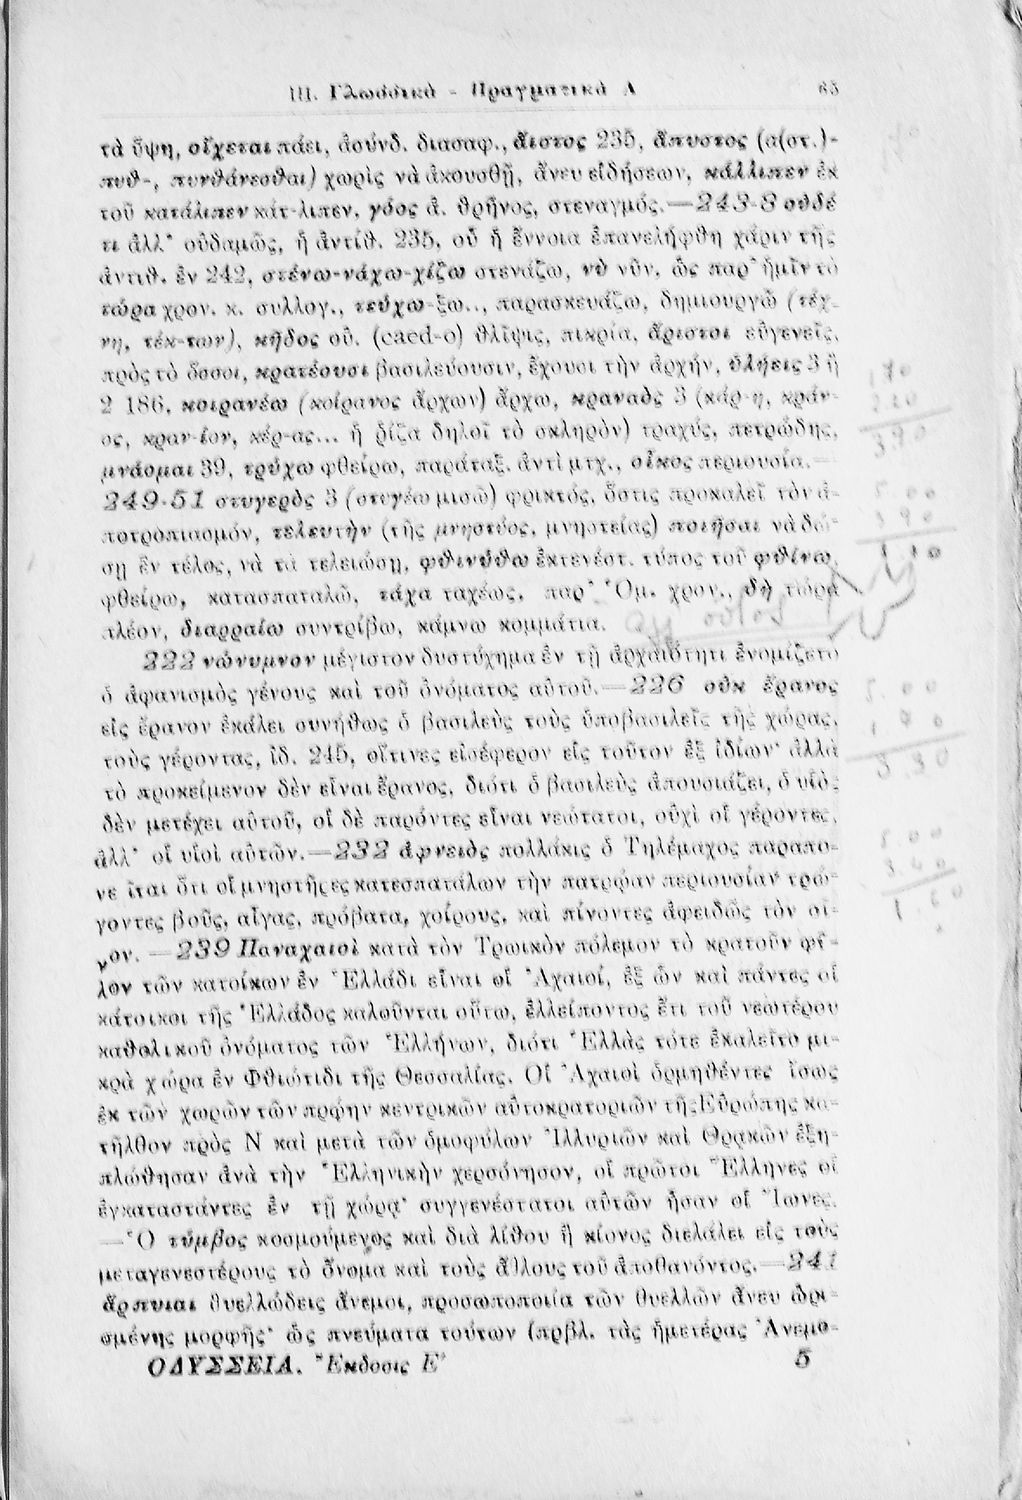 III. Γλωσσικὰ - Πραγματικὰ Α 65
τὰ ὕψη, οἴχεται πάει, ἀσύνδ. διασαφ., ἄιστος 235, ἄπυστος (α(στ.)-
πυθ-, πυνθάνεσθαι) χωρὶς νὰ ἀκουσθῇ, ἄνευ εἰδήσεων, κάλλιπεν ἐκ
τοῦ κατάλιπεν κάτ-λιπεν, γόος ἀ. θρῆνος, στεναγμός.—243-8 οὐδέ
τι ἀλλ' οὐδαμῶς, ἡ ἀντίθ. 235, οὗ ἡ ἔννοια ἐπανελήφθη χάριν τῆς
ἀντιθ. ἐν 242, στένω-νάχω-χίζω στενάζω, νὺ νῦν, ὡς παρ' ἡμῖν τὸ
τώρα χρον. κ. συλλογ., τεύχω-ξω.., παρασκευάζω, δημιουργῶ (τέχ-
νη, τέκ-των), κῆδος οὐ. (caed-o) θλῖψις, πικρία, ἄριστοι εὐγενεῖς,
πρὸς τὸ ὅσσοι, κρατέουσι βασιλεύουσιν, ἔχουσι τὴν ἀρχήν, ὑλήεις 3 ἢ
2 186, κοιρανέω (κοίρανος ἄρχων) ἄρχω, κραναὸς 3 (κάρ-η, κράν-
ος, κραν-ίον, κέρ-ας... ἡ ῥίζα δηλοῖ τὸ σκληρὸν) τραχύς, πετρώδης,
μνάομαι 39, τρύχω φθείρω, παράταξ. ἀντὶ μτχ., οἶκος περιουσία.—
249-51 στυγερὸς 3 (στυγέω μισῶ) φρικτός, ὅστις προκαλεῖ τὸν ἀ-
ποτροπιασμόν, τελευτὴν (τῆς μνηστύος, μνηστείας) ποιῆσαι νὰ δώ-
σῃ ἓν τέλος, νὰ τὰ τελειώσῃ, φθινύθω ἐκτενέστ. τύπος τοῦ φθίνω,
φθείρω, κατασπαταλῶ, τάχα ταχέως, παρ' Ὁμ. χρον., δὴ τώρα
πλέον, διαρραίω συντρίβω, κάμνω κομμάτια.
222 νώνυμνον μέγιστον δυστύχημα ἐν τῇ ἀρχαιότητι ἐνομίζετο
ὁ ἀφανισμὸς γένους καὶ τοῦ ὀνόματος αὐτοῦ.—226 οὐκ ἔρανος
εἰς ἔρανον ἐκάλει συνήθως ὁ βασιλεὺς τοὺς ὑποβασιλεῖς τῆς χώρας,
τοὺς γέροντας, ἰδ. 245, οἵτινες εἰσέφερον εἰς τοῦτον ἐξ ἰδίων· ἀλλὰ
τὸ προκείμενον δὲν εἶναι ἔρανος, διότι ὁ βασιλεὺς ἀπουσιάζει, ὁ υἱὸς
δὲν μετέχει αὐτοῦ, οἱ δὲ παρόντες εἶναι νεώτατοι, οὐχὶ οἱ γέροντες,
ἀλλ' οἱ υἱοὶ αὐτῶν.—232 ἀφνειὸς πολλάκις ὁ Τηλέμαχος παραπο-
νεῖται ὅτι οἱ μνηστῆρες κατεσπατάλων τὴν πατρῴαν περιουσίαν τρώ-
γοντες βοῦς, αἶγας, πρόβατα, χοίρους, καὶ πίνοντες ἀφειδῶς τὸν οἶ-
νον. —239 Παναχαιοὶ κατὰ τὸν Τρωικὸν πόλεμον τὸ κρατοῦν φῦ-
λον τῶν κατοίκων ἐν Ἑλλάδι εἶναι οἱ Ἀχαιοί, ἐξ ὧν καὶ πάντες οἱ
κάτοικοι τῆς Ἑλλάδος καλοῦνται οὕτω, ἐλλείποντος ἔτι τοῦ νεωτέρου
καθολικοῦ ὀνόματος τῶν Ἑλλήνων, διότι Ἑλλὰς τότε ἐκαλεῖτο μι-
κρὰ χώρα ἐν Φθιώτιδι τῆς Θεσσαλίας. Οἱ Ἀχαιοὶ ὁρμηθέντες ἴσως
ἐκ τῶν χωρῶν τῶν πρῴην κεντρικῶν αὐτοκρατοριῶν τῆς Εὐρώπης κα-
τῆλθον πρὸς Ν καὶ μετὰ τῶν ὁμοφύλων Ἰλλυριῶν καὶ Θρᾳκῶν ἐξη-
πλώθησαν ἀνὰ τὴν Ἑλληνικὴν χερσόνησον, οἱ πρῶτοι Ἕλληνες οἱ
ἐγκαταστάντες ἐν τῇ χώρᾳ· συγγενέστατοι αὐτῶν ἦσαν οἱ Ἴωνες.
—Ὁ τύμβος κοσμούμενος καὶ διὰ λίθου ἢ κίονος διελάλει εἰς τοὺς
μεταγενεστέρους τὸ ὄνομα καὶ τοὺς ἄθλους τοῦ ἀποθανόντος.—241
ἅρπυιαι θυελλώδεις ἄνεμοι, προσωποποιία τῶν θυελλῶν ἄνευ ὡρι-
σμένης μορφῆς· ὡς πνεύματα τούτων (πρβλ. τὰς ἡμετέρας Ἀνεμο-
ΟΔΥΣΣΕΙΑ. Ἔκδοσις Ε' 5
390
390
3.30